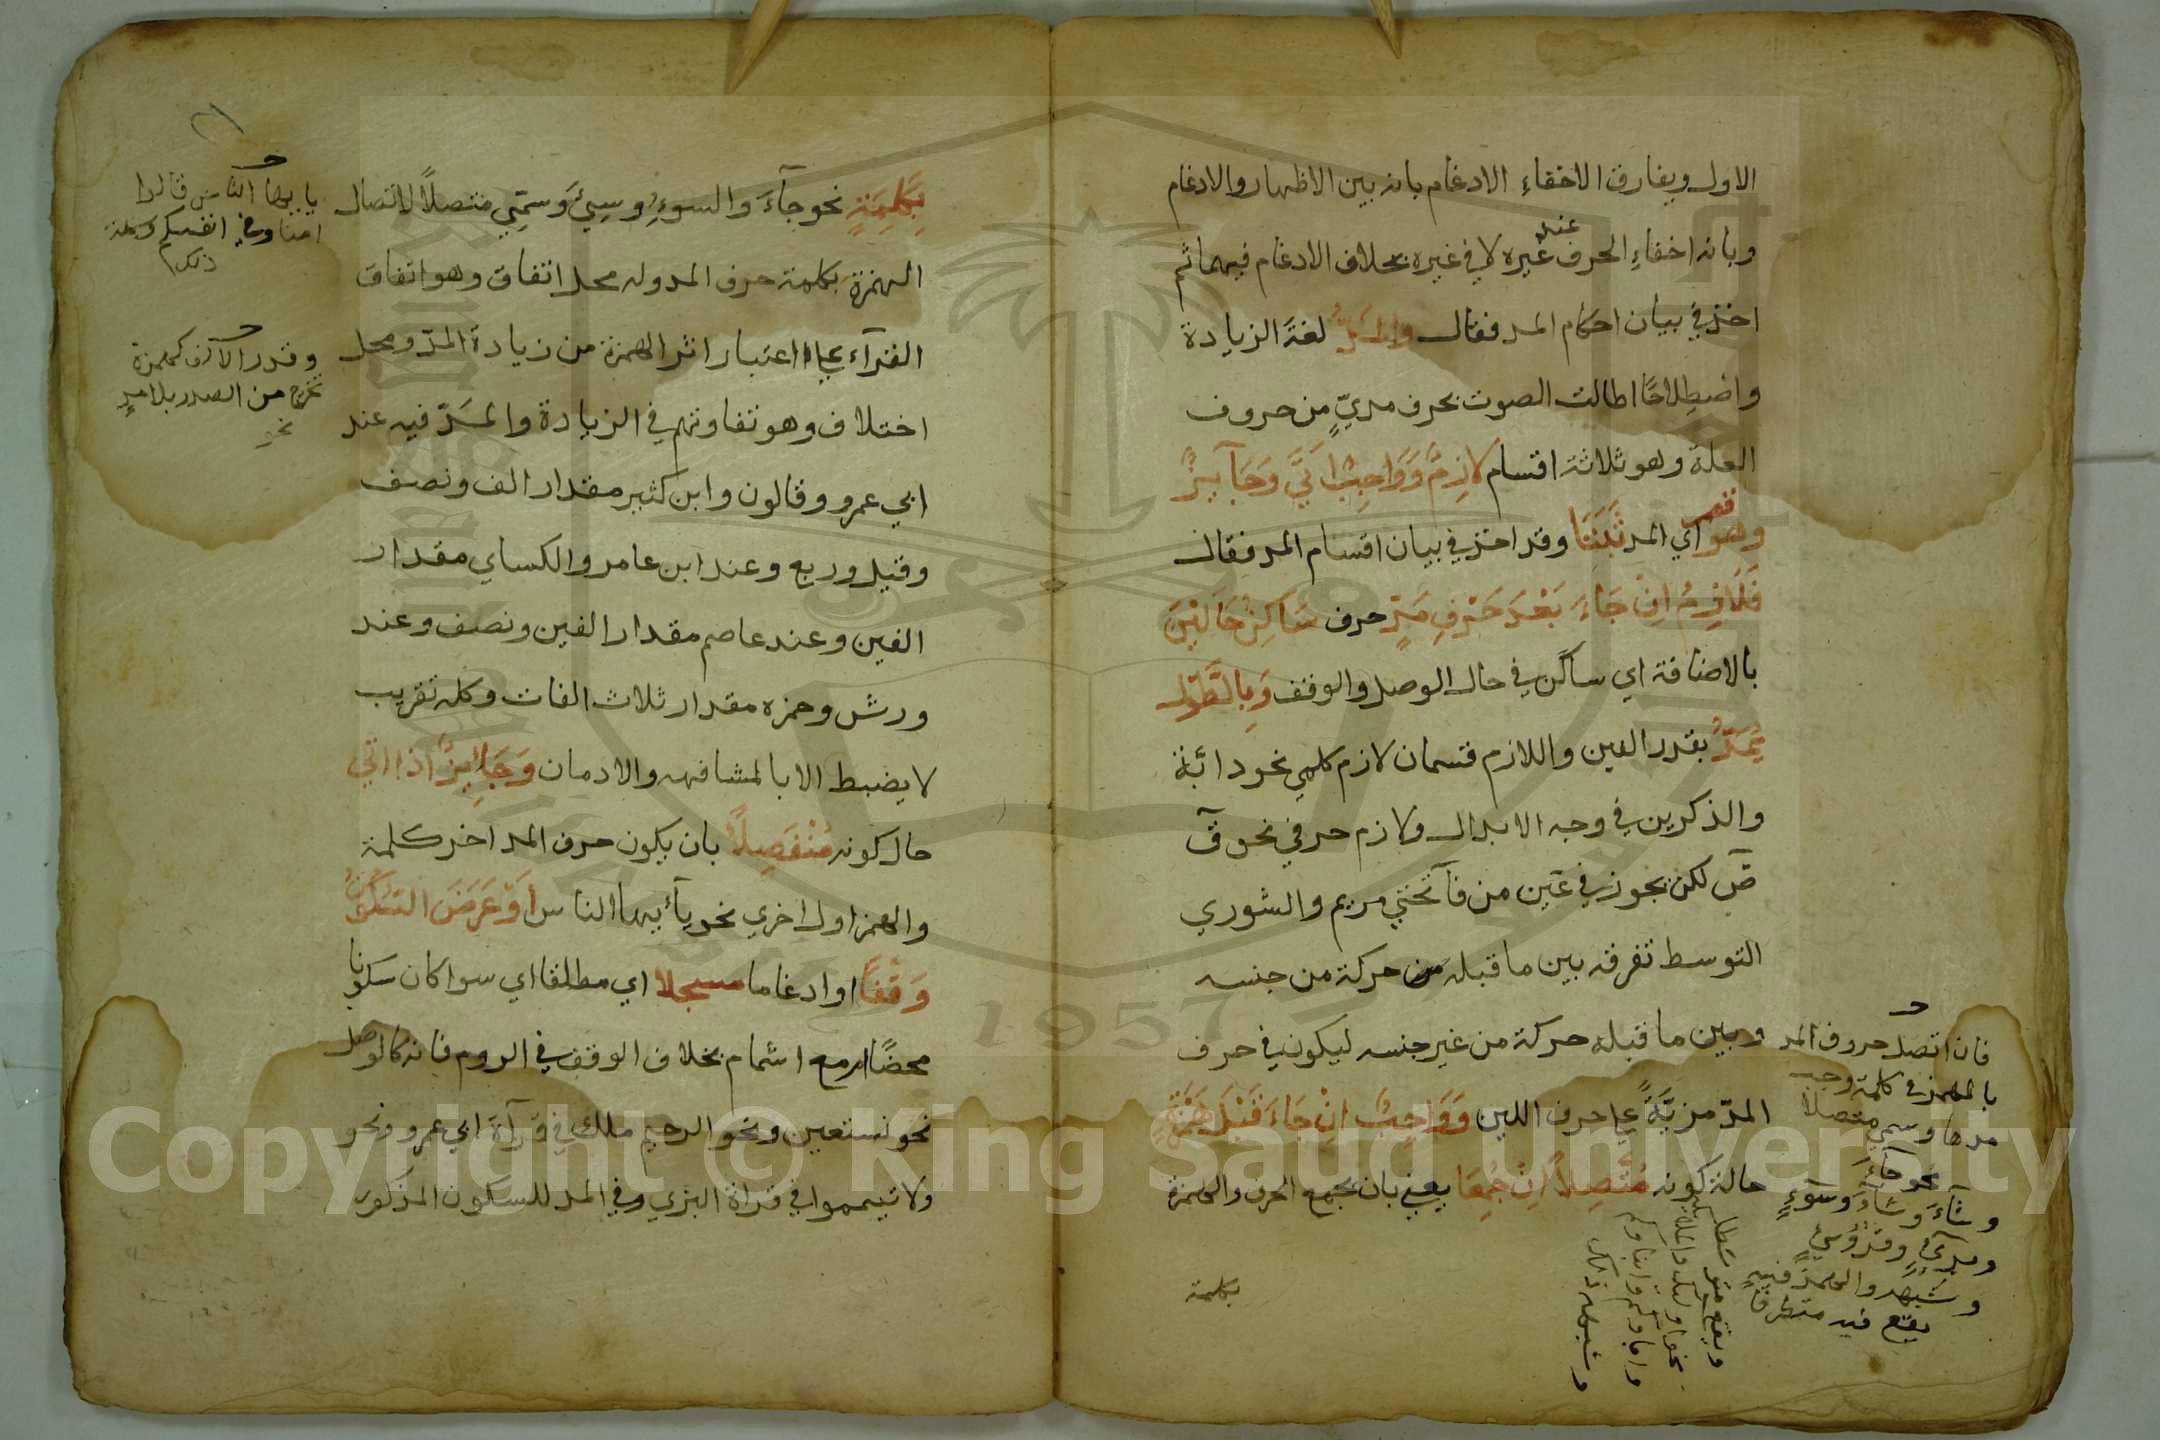 الاول ويفارق الاخفاء الادغام بانه بين الاظهار والادغام
وبانه اخفاء الحرف عند غيره لا في غيره بخلاف الادغام فيهما ثم
اخذ في بيان احكام المد فقال والمَدُّ لغة الزيادة
واصطلاحًا اطالت الصوت بحرف مديّ من حروف
العلة وهو ثلاثة اقسام لازِمٌ وَوَاجِبٌ اَتَى وَجَآيِزٌ
وهو اي المد وقصر ثَبَتَا وقد اخذ في بيان اقسام المد فقال
فَلَازِمٌ اِنْ جَاءَ بَعْدَ حَرْفِ مَدٍّ حرف سَاكِنُ حَالَيْنِ
بالاضافة اي ساكن في حال الوصل والوقف وَبِالطُّولِ
يُمَدّ بقدر الفين واللازم قسمان لازم كلمي نحو دائة
والذكرين في وجه الابدال ولازم حرفي نحو قٓ
صٓ لكن يجوز في عَين من فاتحتي مريم والشوري
التوسط تفرقه بين ما قبله من حركة من جنسه
وبين ما قبله حركة من غير جنسه ليكون في حرف
المدّ مزيَّةً علي حرف اللين وَوَاجِبٌ اِنْ جَاءَ قَبْلَ هَمْزَةٍ
حالة كونه مُتَّصِلاً اِنْ جُمِعَا يعني بان يجمع الحرف والهمزة
بكلمة
فان اتصل حروف المد
بالهمز في كلمة وجب
مدها وسمي متصلا
نحو جآءَ
وشآءَ وسآءَ وسوٓءٍ
وشبهه والهمز فيه
يقع فيه متطرفا
ويقع متوسطا
وشبه ذلك
بِكَلِمَةٍ نحو جآءَ والسوءِ وسِيْءَ وسُمّي متصلاً لاتصال
الهمزة بكلمة حرف المد وله محل اتفاق وهو اتفاق
القرآء علي اعتبار اثر الهمزة من زيادة المدّ ومحل
اختلاف وهو تفاوتهم في الزيادة والمَدّ فيه عند
ابي عمرو وقالون وابن كثير مقدار الف ونصف
وقيل وربع وعند ابن عامر والكساي مقدار
الفين وعند عاصم مقدار الفين ونصف وعند
ورش وحمزه مقدار ثلاث الفات وكله تقريب
لا يضبط الا بالمشافهه والادمان وَجَايِزٌ اذا اتي
حال كونه مُنْفَصِلاً بان يكون حرف المد اخر كلمة
والهمز اول اخري نحو يأيها الناس اَوْ عَرَضَ السُّكُونُ
وَقْفًا او ادغاما مسجلا اي مطلقا اي سوا كان سكونا
محضًا او مع اشمام بخلاف الوقف في الروم فانه كالوصل
نحو نستعين ونحو الرحيم ملك في قرآة ابي عمرو ونحو
ولا تيمموا في قراة البزي وفي المد للسكون المذكور
يا يها الناس قالوا
امنا وفي انفسكم وشبه
ذلك
وقدر الالف كهمزة
تخرج من الصدر بلا مدٍ
نحو
Copyright © King Saud University
1957